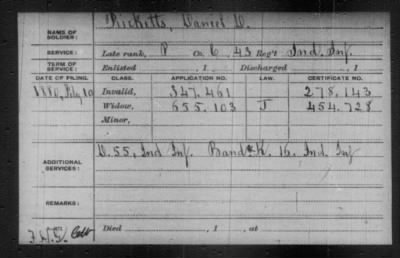 NAME OF SOLDIER: Ricketts, Daniel D.
SERVICE: Late rank, P Co. C, 43 Reg't Ind. Inf.
TERM OF SERVICE: Enlisted , 1 Discharged , 1
DATE OF FILING. CLASS. APPLICATION NO. LAW. CERTIFICATE NO.
1880, July 10 Invalid, 347.461 278.143
Widow, 655.103 J 454.728
Minor,
ADDITIONAL SERVICES: D. 55, Ind Inf. Band & K. 16. Ind. Inf
REMARKS:
Died , 1 , at